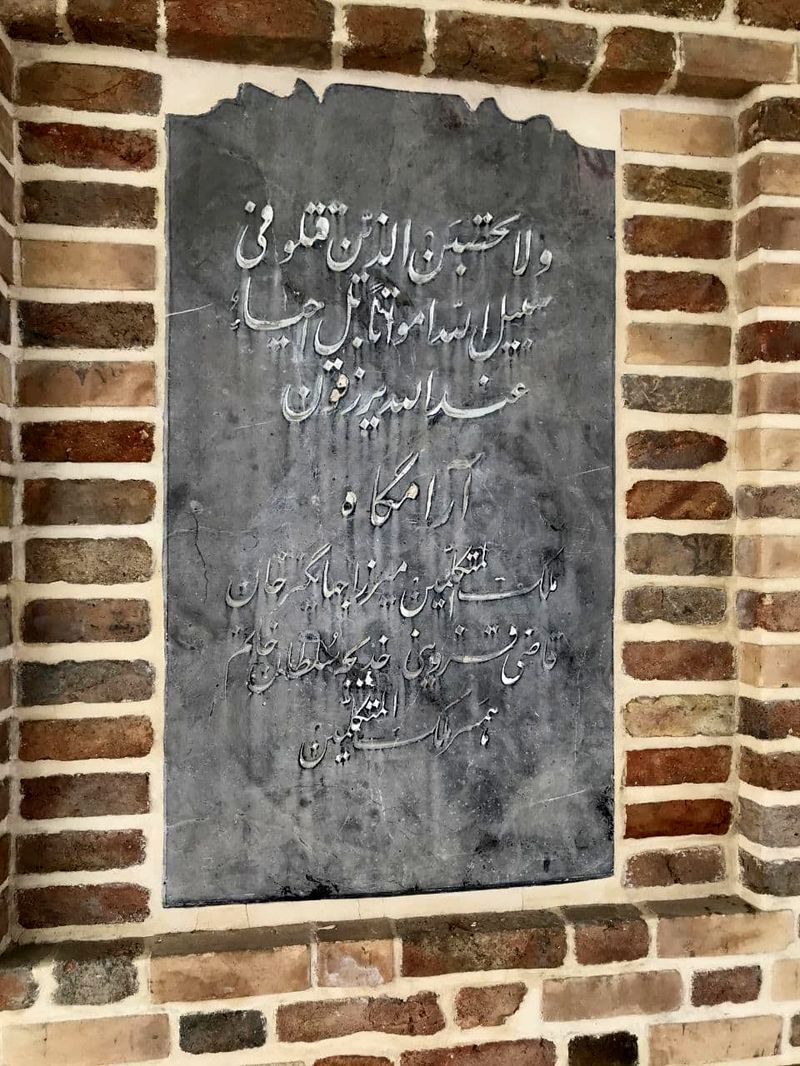 ولا تحسبَن الذیّن قتلو فی
سبیل اللّه امواتاً بَل احیاءُ
عند الله یرزقون
آرامگاه
ملک المتکلّمین میرزا جهانگیر خان
قاضی قزوینی خدیجه سُلطان خانم
همسر ملک المتکلّمین